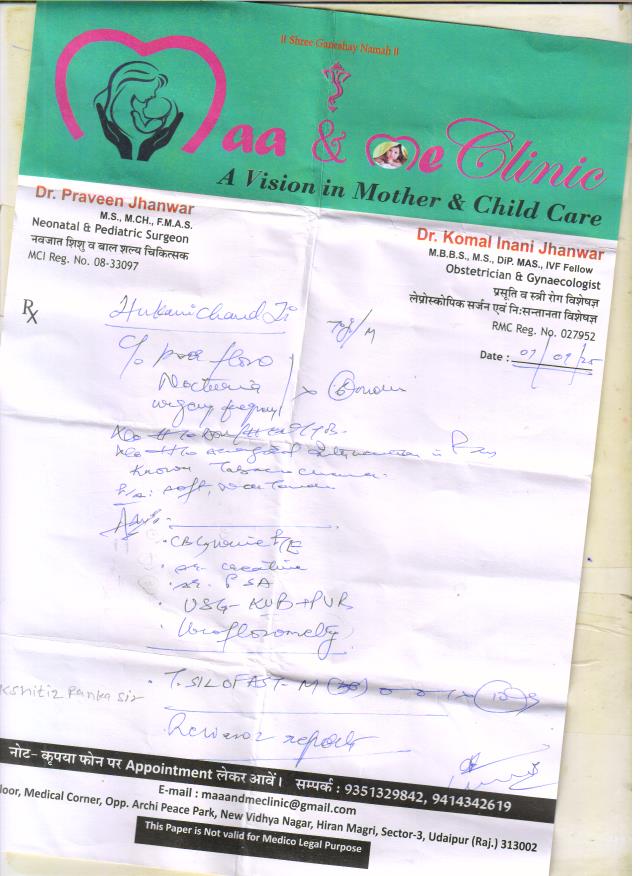 ॥ Shree Ganeshay Namah ॥
Maa & Me Clinic
A Vision in Mother & Child Care
Dr. Praveen Jhanwar
M.S., M.CH., F.M.A.S.
Neonatal & Pediatric Surgeon
नवजात शिशु व बाल शल्य चिकित्सक
MCI Reg. No. 08-33097
Dr. Komal Inani Jhanwar
M.B.B.S., M.S., DiP. MAS., IVF Fellow
Obstetrician & Gynaecologist
प्रसूति व स्त्री रोग विशेषज्ञ
लेप्रोस्कोपिक सर्जन एवं निःसन्तानता विशेषज्ञ
RMC Reg. No. 027952
Date :
Rx
Hukamichand Ji
c/o poor flow
Nocturia
urgency frequency
Known Tobacco chewer
P/A: soft, Non Tender
Adv:
· CBC, Urine R/E
· Sr. creatine
· Sr. PSA
· USG- KUB+PVR
· Uroflowmetry
· T. SILOFAST-M
Kshitiz Panka Sir
Review reports
नोट- कृपया फोन पर Appointment लेकर आवें। सम्पर्क : 9351329842, 9414342619
E-mail : maaandmeclinic@gmail.com
loor, Medical Corner, Opp. Archi Peace Park, New Vidhya Nagar, Hiran Magri, Sector-3, Udaipur (Raj.) 313002
This Paper is Not valid for Medico Legal Purpose